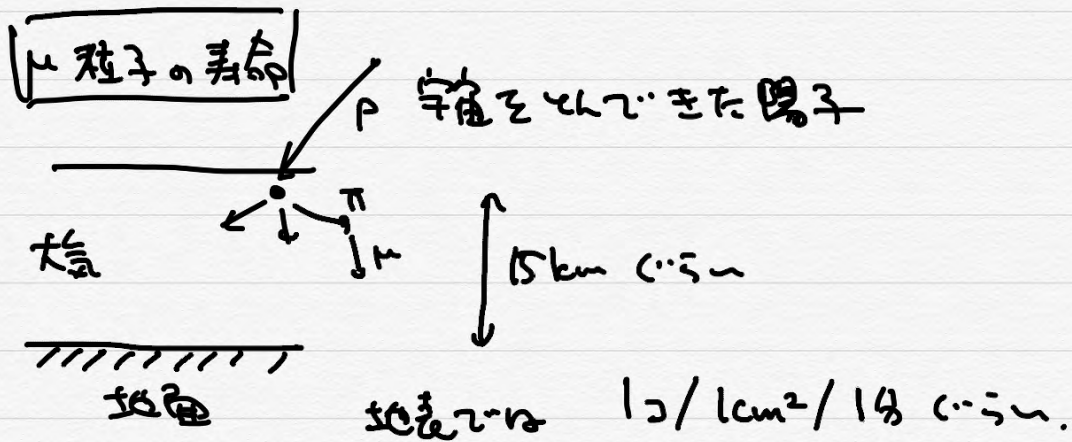 μ粒子の寿命
p 宇宙をとんできた陽子
π
大気
μ
15km ぐらい
地面
地表では 1コ/1cm²/1分 ぐらい.